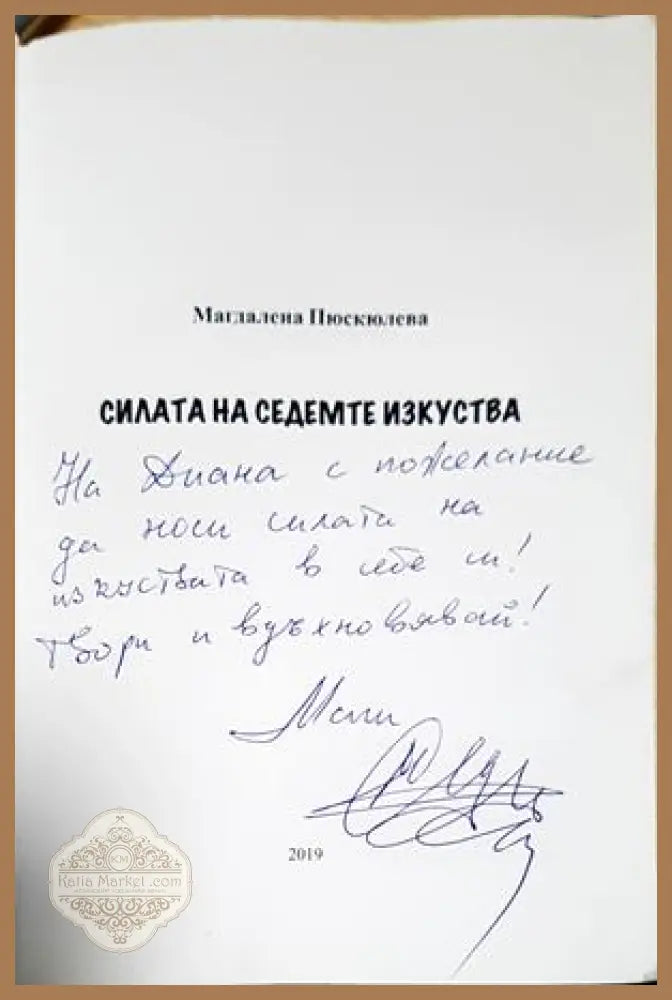 Магдалена Пюскюлева
СИЛАТА НА СЕДЕМТЕ ИЗКУСТВА
На Диана с пожелание
да носи силата на
изкуствата в себе си!
Твори и вдъхновявай!
2019
KM
Katia Market .com